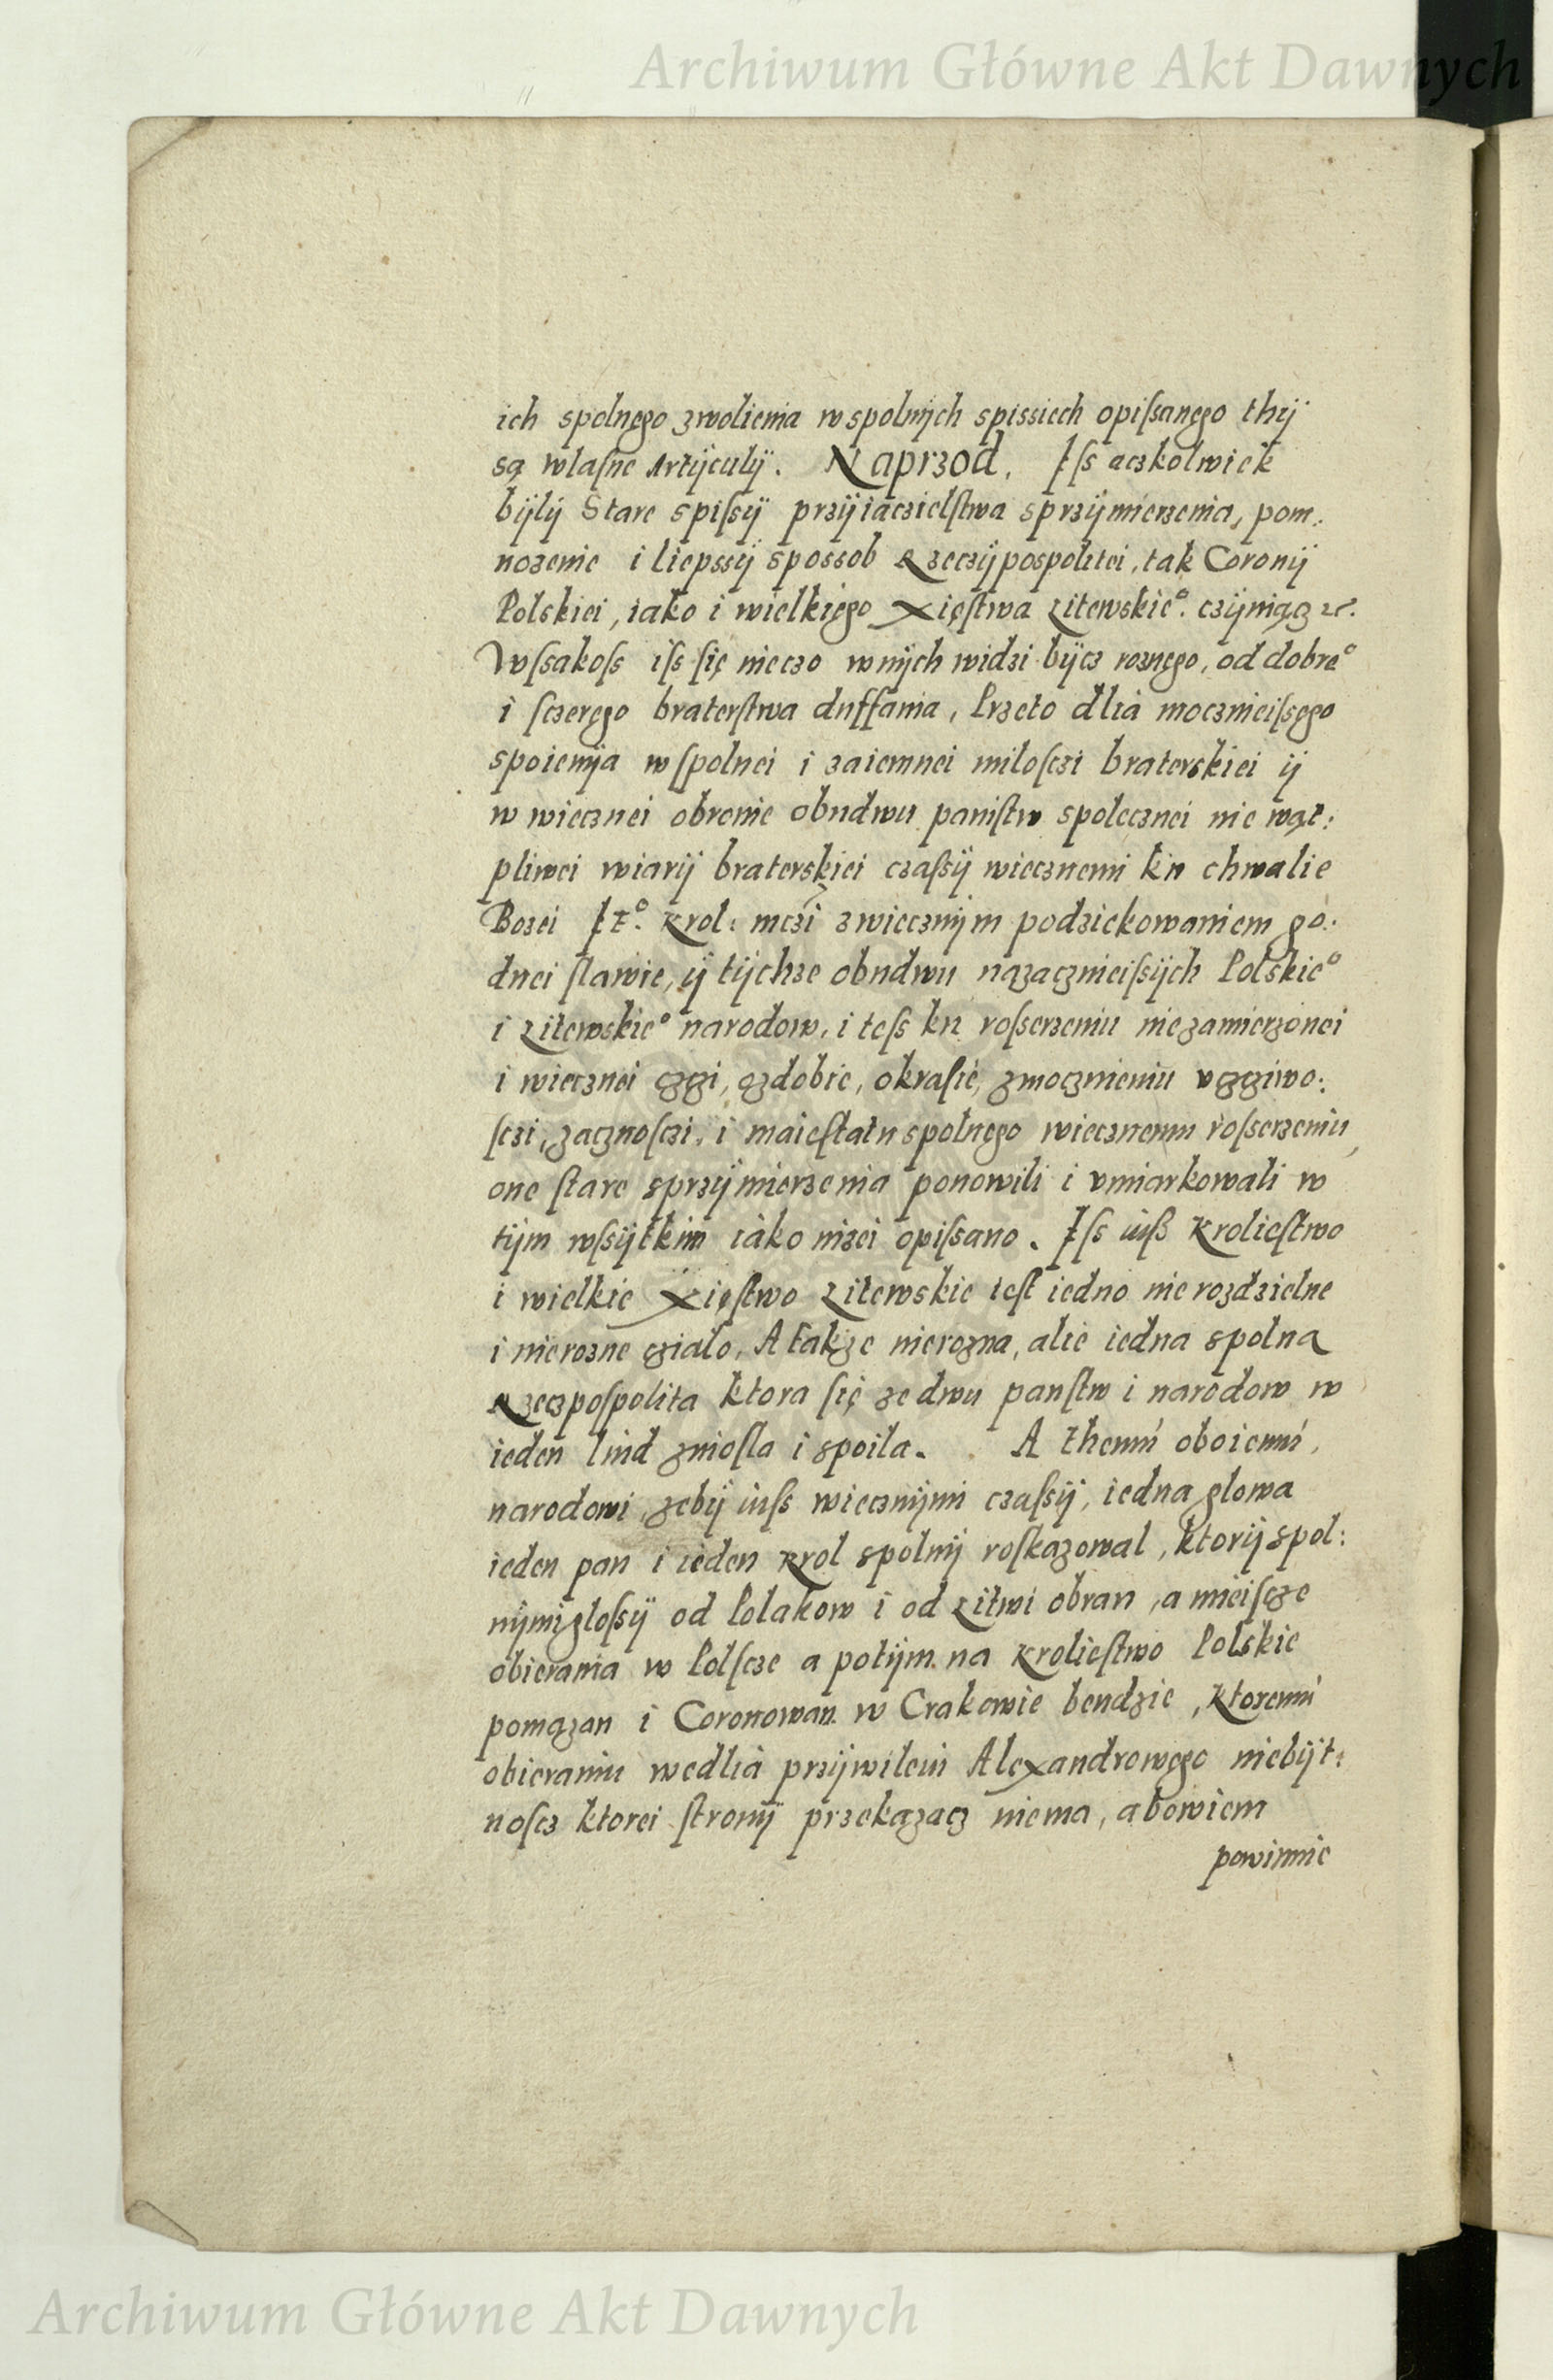 Archiwum Główne Akt Dawnych
ich spolnego zwolienia w spolnÿch spissiech opiſsanego thÿ
są wlaſne Artÿculÿ. Naprzod. Iſs aczkolwiek
bÿlÿ Stare spiſsÿ przÿiaczielſtwa sprzÿmierzenia, pom:
nozenie i liepssÿ spossob Rzeczÿpospolitei, tak Coronÿ
Polskiei, iako i wielkięgo Xięſtwa Litewskie°. czÿniącz ⁊c.
Wſsakoſs iſs ſię nieczo w nÿch widzi bÿcz roznęgo, od dobre°
i ſczeręgo braterſtwa duffania, Przeto dlia moczneiſsęgo
spoienÿa w ſpolnei i zaiemnei miloſczi braterskiei ÿ
w wiecznei obronie obudwu paniſtw spolecznei nie wąt:
pliwei wiarÿ braterskiei czaſsÿ wiecznemi ku chwalie
Bozei It°. Krol: mczi z wiecznÿm podziekowaniem go:
dnei ſlawie, ÿ tÿchze obudwu nązaczneiſsÿch Polskie°
i Litewskie° narodow, i teſs ku roſserzeniu niezamierzonei
i wiecznei czczi, ozdobie, okraſie, zmocznieniu vczciwo:
ſczi, zacznoſczi, i maieſtatu spolnęgo wiecznemu roſserzeniu,
one ſtare sprzÿmierzenia ponowili i vmiarkowali w
tÿm wſsÿtkim iako nizei opiſsano. Iſs iuß Krolieſtwo
i wielkie Xięſtwo Litewskie ieſt iedno nierozdzielne
i nierozne czialo, A także nierozna, alie iedna spolna
Rzeczpoſpolita ktora ſię ze dwu panſtw i narodow w
ieden liud znioſla i spoila. A themu oboiemu
narodowi, zebÿ iuſs wiecznÿmi czaſsÿ, iedna glowa
ieden pan i ieden Krol spolnÿ roſkazowal, ktorÿ spol:
nÿmi gloſsÿ od Polakow i od Litwi obran, a mieiſcze
obierania w Polſcze a potÿm na Krolieſtwo Polskie
pomązan i Coronowan w Crakowie bendzie, Ktoremu
obieraniu wedlia przÿwileiu Alexandrowęgo niebÿt:
noſcz ktorei ſtronÿ przekązacz niema, abowiem
powinnie
Archiwum Główne Akt Dawnych